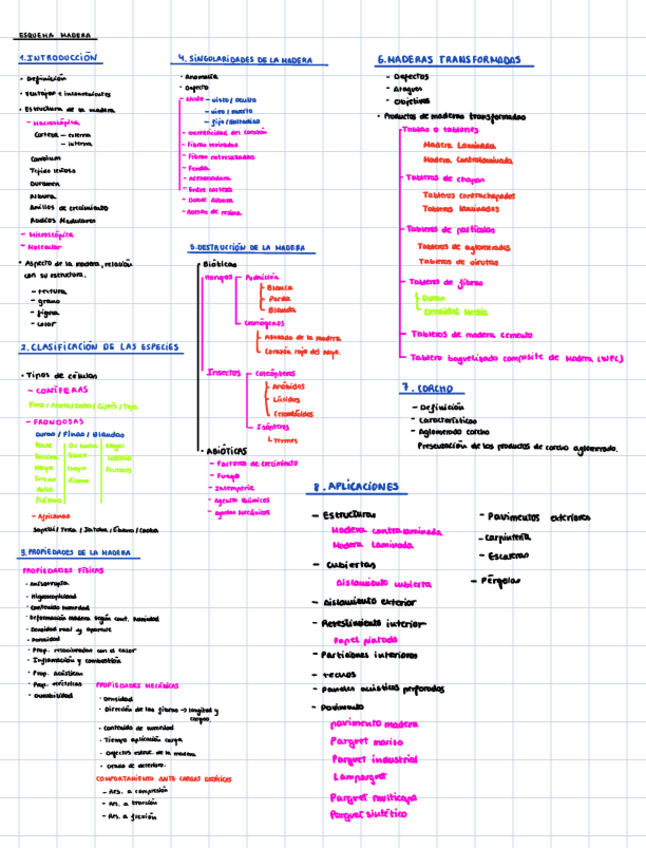 ESQUEMA MADERA
1. INTRODUCCIÓN
- Definición
- Ventajas e inconvenientes
- Estructura de la madera
- Macroscópica
Corteza - externa
- interna
Cambium
Tejido leñoso
Duramen
Albura
Anillos de crecimiento
Radios Medulares
- Microscópica
- Molecular
- Aspecto de la madera, relación
con su estructura.
- Textura
- grano
- figura
- color
2. CLASIFICACIÓN DE LAS ESPECIES
- Tipos de células
- CONÍFERAS
Pino / Abeto / Cedro / Ciprés / Tejo
- FRONDOSAS
Duras / Finas / Blandas
- Africanas
Sapeli / Teca / Jatoba / Ébano / Caoba
3. PROPIEDADES DE LA MADERA
PROPIEDADES FÍSICAS
- Anisotropía
- Higroscopicidad
- Contenido humedad
- Deformación madera según cont. humedad
- Densidad real y aparente
- Porosidad
- Prop. relacionadas con el calor
- Inflamación y combustión
- Prop. acústicas
- Prop. eléctricas
- Durabilidad
PROPIEDADES MECÁNICAS
- Densidad
- Dirección de las fibras → longitud y
cargas.
- Contenido de humedad
- Tiempo aplicación carga
- Defectos estruc. de la madera
- Grado de deterioro.
COMPORTAMIENTO ANTE CARGAS ESTÁTICAS
- Res. a compresión
- Res. a tracción
- Res. a flexión
4. SINGULARIDADES DE LA MADERA
- Anomalía
- Defecto
- Nudo - visto / oculto
- vivo / muerto
- fijo / saltadizo
- excentricidad del corazón
- Fibras reviradas
- Fibras entrelazadas
- Fenda
- Acebolladura
- Entre corteza
- Doble Albura
- Bolsas de resina
5. DESTRUCCIÓN DE LA MADERA
Bióticas
Hongos - Pudrición
- Blanca
- Parda
- Blanda
- Cromógenos
- Azulado de la madera
- Corazón rojo del haya.
Insectos - coleópteros
- Anóbidos
- Líctidos
- Cerambícidos
- Isópteros
Termes
- ABIÓTICAS
- Factores de crecimiento
- Fuego
- Intemperie
- agentes Químicos
- agentes Mecánicos
6. MADERAS TRANSFORMADAS
- Defectos
- Ataques
- Objetivos
- Productos de maderas transformadas
- Tablas o tablones
Madera Laminada
Madera Contralaminada
- Tableros de chapas
Tableros contrachapados
Tableros laminados
- Tableros de partículas
Tableros de aglomerados
Tableros de virutas
- Tableros de fibras
Duras
Densidad Media
- Tableros de madera cemento
- Tablero baquelizado composite de Madera (WPC)
7. CORCHO
- Definición
- Características
- Aglomerado corcho
Presentación de los productos de corcho aglomerado.
8. APLICACIONES
- Estructuras
Madera contralaminada
Madera Laminada
- Cubiertas
Aislamiento cubierta
- Aislamiento exterior
- Revestimiento interior
Papel pintado
- Particiones interiores
- Techos
- Paneles acústicos perforados
- Pavimento
pavimento madera
Parquet macizo
Parquet industrial
Lamparquet
Parquet multicapa
Parquet sintético
- Pavimentos exteriores
- Carpintería
- Escaleras
- Pérgolas